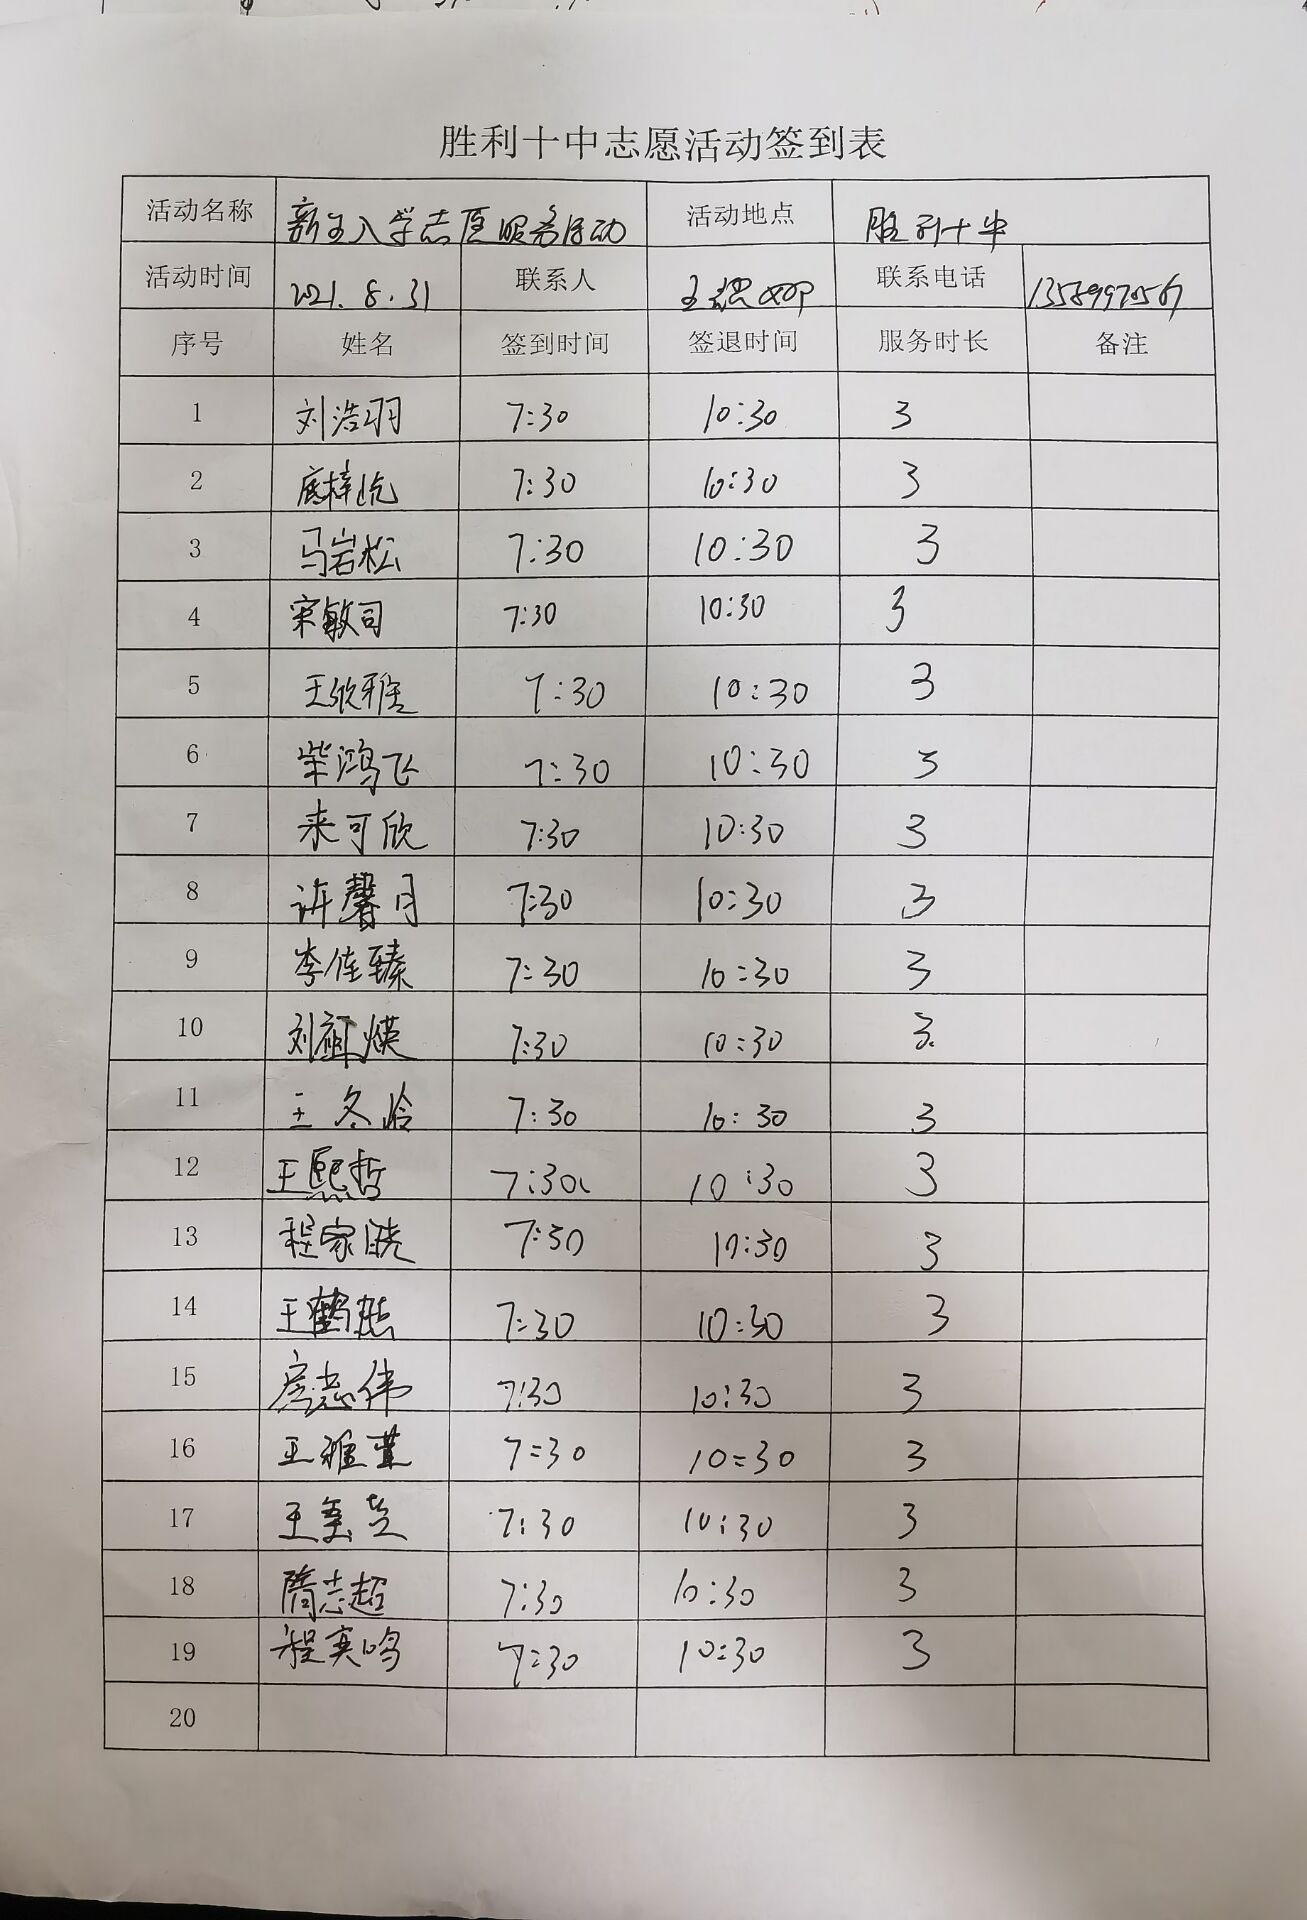 胜利十中志愿活动签到表
活动名称 新生入学志愿服务活动 活动地点 胜利十中
活动时间 2021.8.31 联系人 联系电话
序号 姓名 签到时间 签退时间 服务时长 备注
1 刘浩羽 7:30 10:30 3
2 7:30 10:30 3
3 马岩松 7:30 10:30 3
4 宋敏司 7:30 10:30 3
5 王欣雅 7:30 10:30 3
6 柴鸿飞 7:30 10:30 3
7 来可欣 7:30 10:30 3
8 许馨月 7:30 10:30 3
9 李佳臻 7:30 10:30 3
10 刘祖煐 7:30 10:30 3
11 王冬怜 7:30 10:30 3
12 王熙哲 7:30 10:30 3
13 程家晓 7:30 10:30 3
14 7:30 10:30 3
15 房志伟 7:30 10:30 3
16 7:30 10:30 3
17 7:30 10:30 3
18 隋志超 7:30 10:30 3
19 程奕鸣 7:30 10:30 3
20